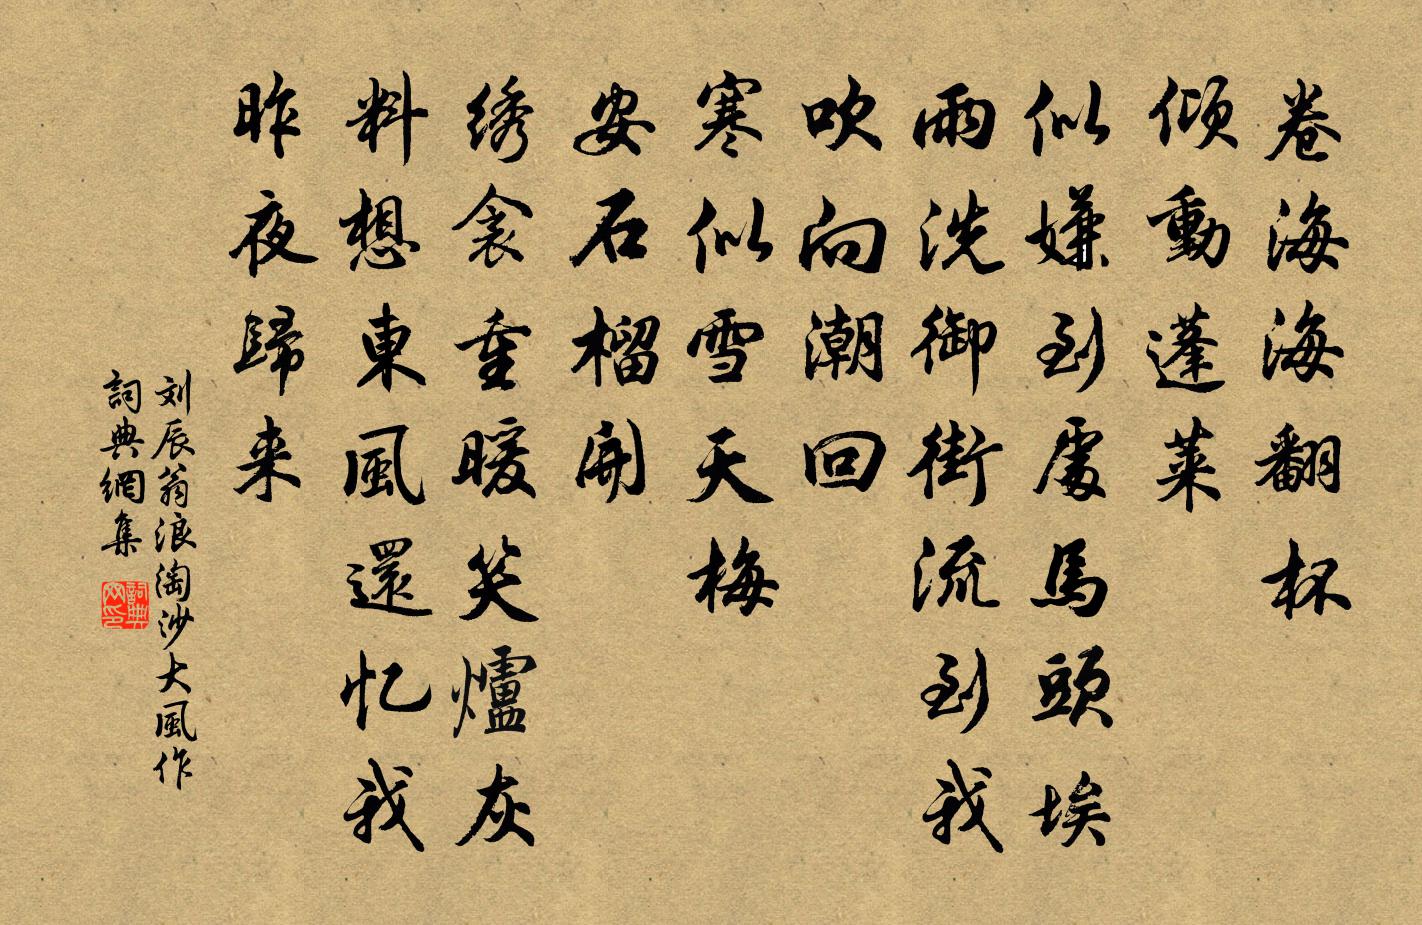 卷海海翻杯
傾動蓬萊
似嫌到處馬頭埃
雨洗御街流到我
吹向潮回
寒似雪天梅
安石榴開
綉衾重暖笑爐灰
料想東風還忆我
昨夜歸来
刘辰翁浪淘沙大風作
詞典網集
詞典网印